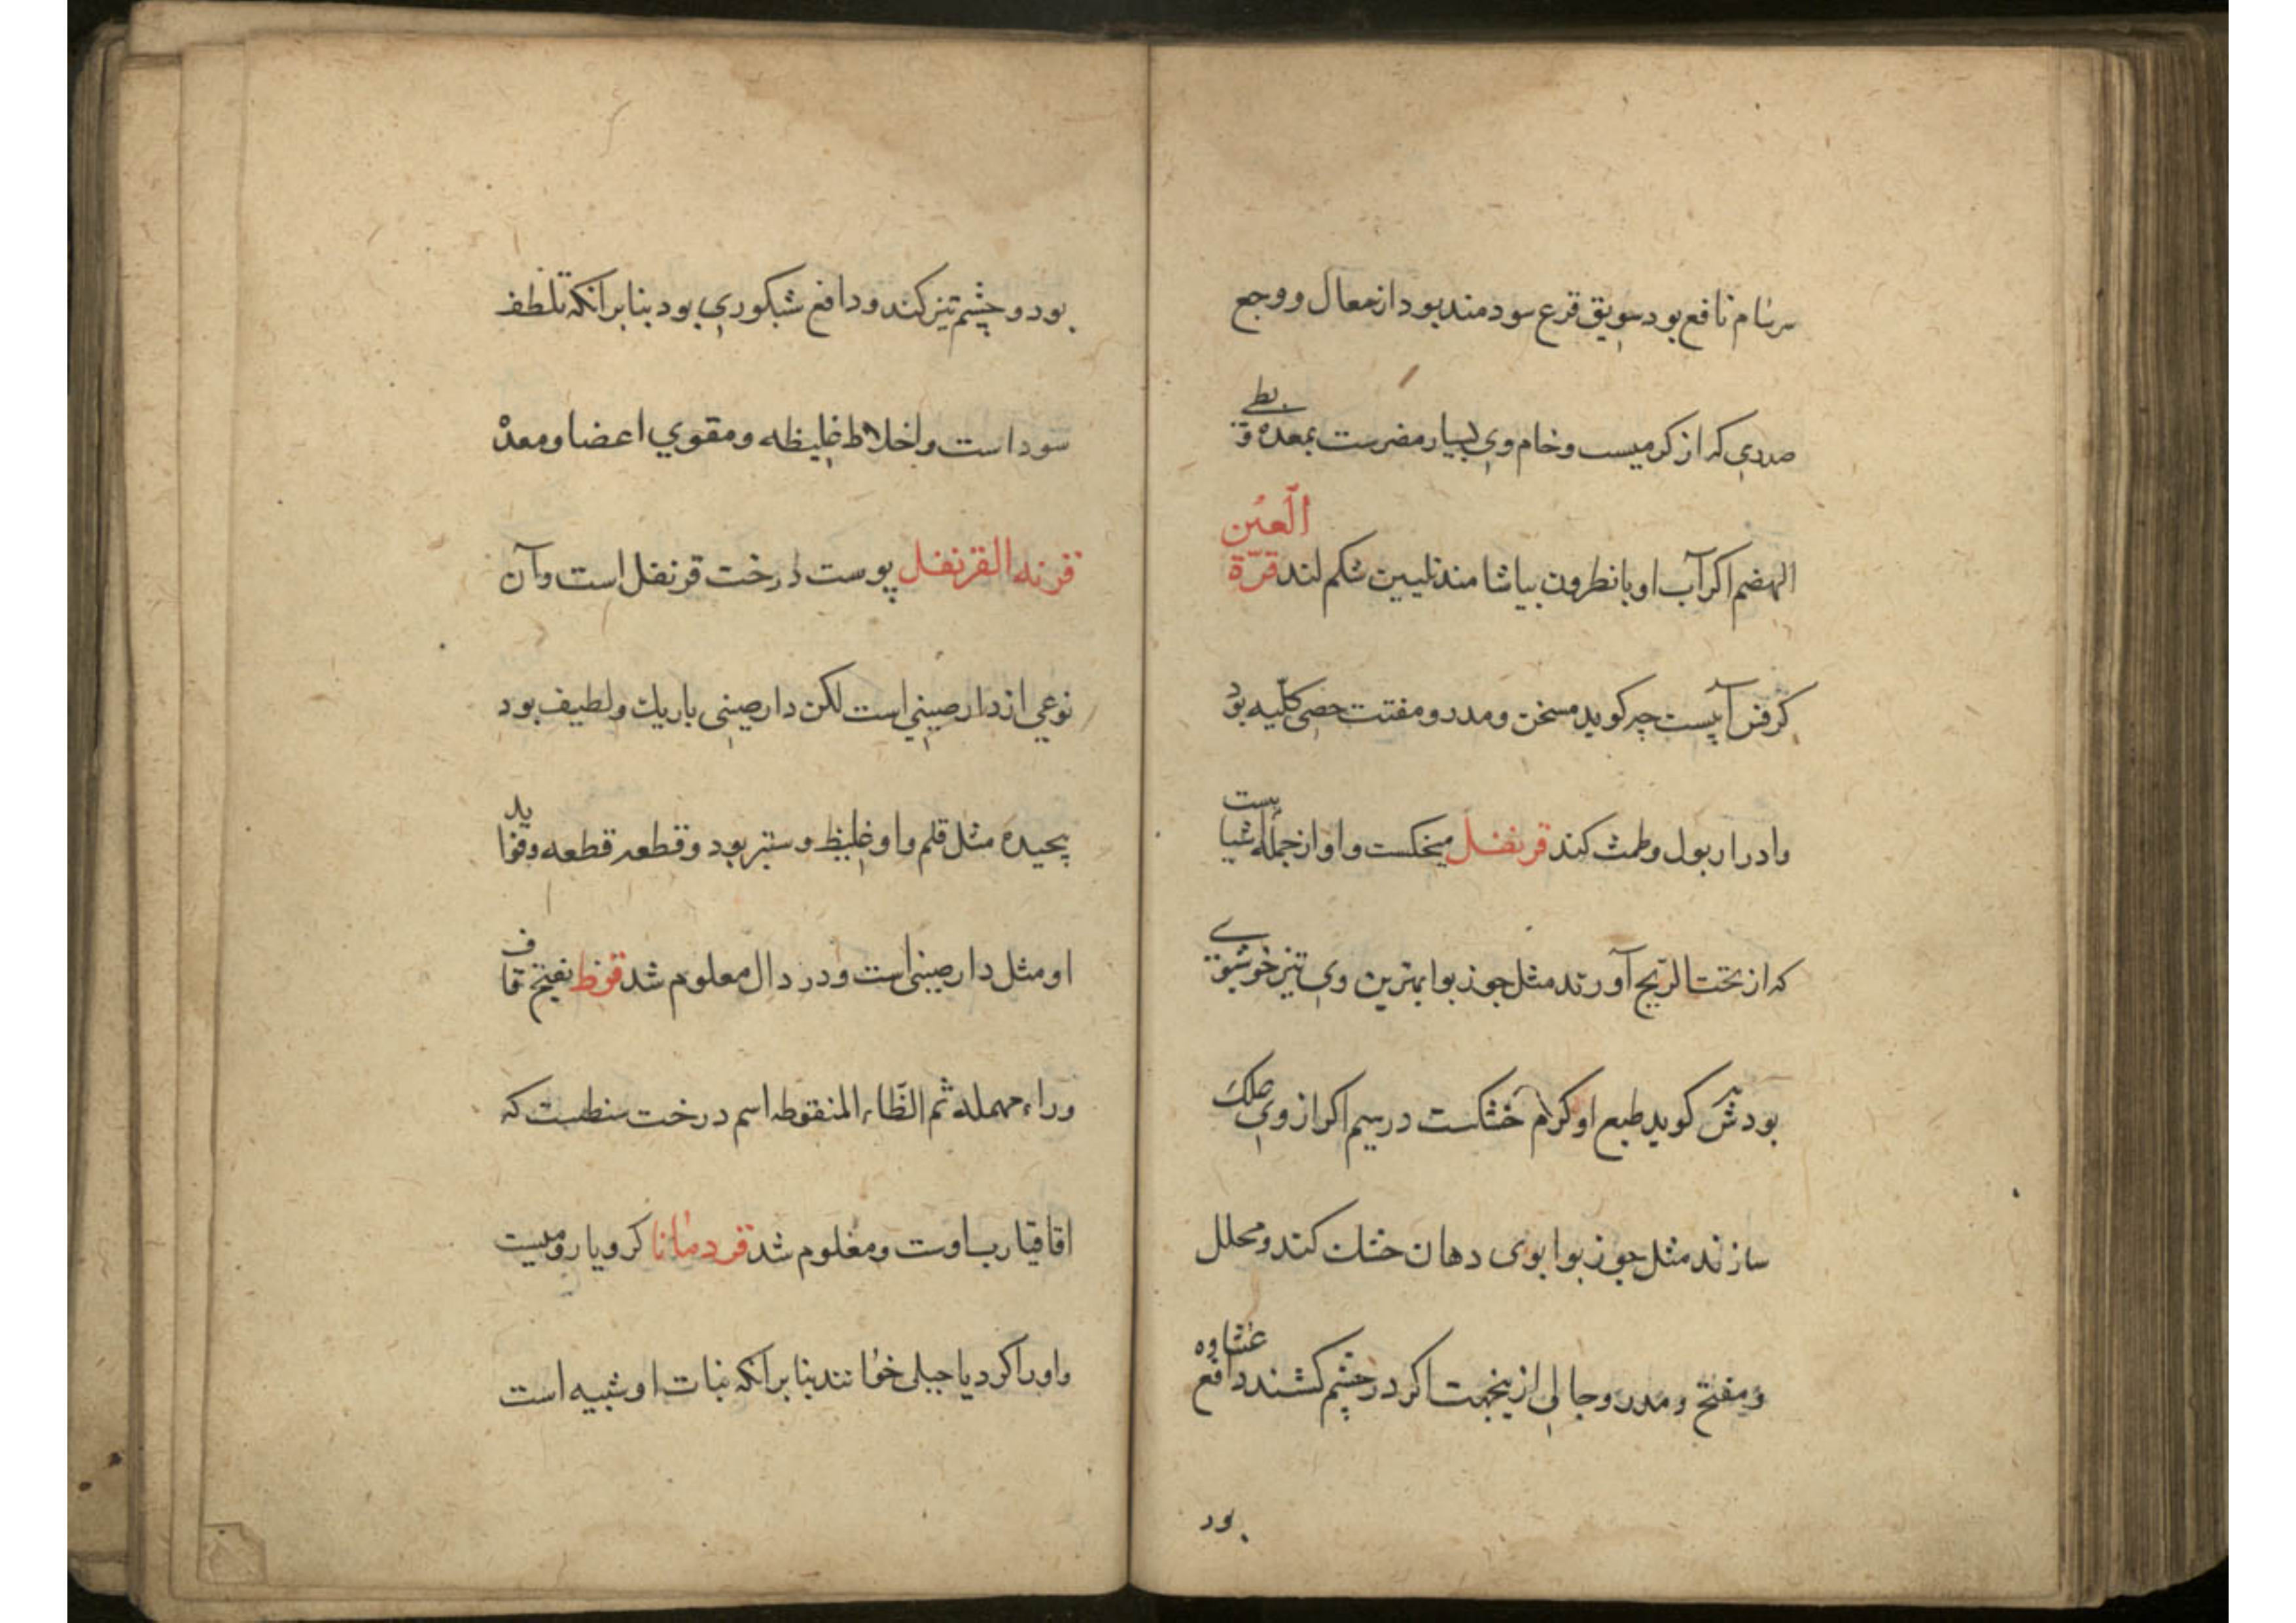 سرسام نافع بود سویق قرع سودمند بود از معال و وجع
صدری که از کرمیست و خام وی بسیار مضرست بمعده و بطی
الهضم اکر آب او با نطرون بیاشامند تلیین شکم کند قرّة العین
کرفس آبیست جیر کوید مسخن و مدر و مفتت حصی کلیه بود
وادرار بول وطمث کند قرنفل میخکست و او از جمله اشیاییست
که از تحت الریح آورند مثل جوز بوا بهترین وی تیز خوشبوی
بود ش کوید طبع او کرم خشکست در سیم اکر از وی علک
سازند مثل جوز بوا بوی دهان خشک کند و محلل
و مفتح و مدر و جالی ازینجهت اکر در چشم کشند دافع غشاوه
بود
بود و چشم تیز کند و دافع شبکوری بود بنابر انکه تلطف
سوداست و اخلاط غلیظه و مقوی اعضا و معده
قرنه القرنفل پوست درخت قرنفل است و آن
نوعی از دارصینی است لکن دارصینی باریك و لطیف بود
پیچیده مثل قلم و او غلیظ و ستبر بود و قطعه قطعه و فواید
او مثل دارصینی است و در دال معلوم شد قرظ بفتح قاف
وراء مهمله ثم الظاء المنقوطه اسم درخت سنطست که
اقاقیا رب اوست و معلوم شد قردمانا کرویا رومیست
واورا کردیا جبلی خوانند بنابر انکه نبات او شبیه است